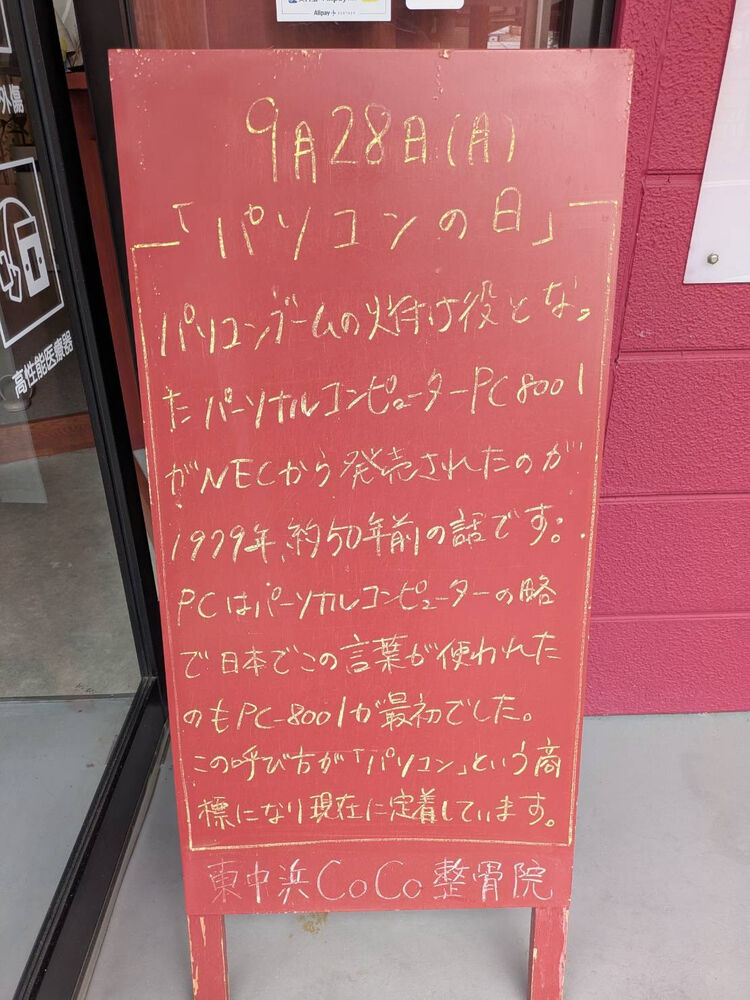 Alipay
外傷
高性能医療器
9月28日(月)
「パソコンの日」
パソコンゲームの火付け役となっ
たパーソナルコンピューターPC8001
がNECから発売されたのが
1979年、約50年前の話です。
PCはパーソナルコンピューターの略
で日本でこの言葉が使われた
のもPC-8001が最初でした。
この呼び方が「パソコン」という商
標になり現在に定着しています。
東中浜CoCo整骨院